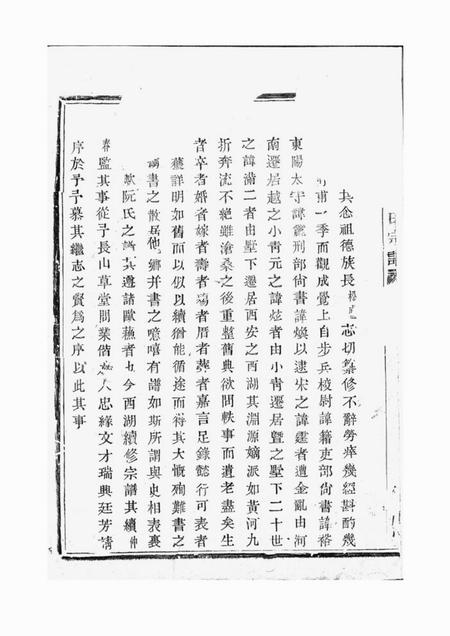 其念祖德族長 志切纂修不辭勞瘁幾經斟酌幾
甫一季而觀成覺上自步兵校尉諱籍吏部尙書諱裕
東陽太守諱 刑部尙書諱煥以逮宋之諱 者遭金亂由河
南遷居越之小靑元之諱炫者由小靑遷居曁之墅下二十世
之諱滿二者由墅下遷居西安之西湖其淵源嫡派如黃河九
折奔流不絕雖滄桑之後重整舊典欲問軼事而遺老盡矣生
者卒者婚者嫁者壽者殤者厝者葬者嘉言足錄懿行可表者
詳明如舊而以似以續猶能循途而得其大慨殉難書之
書之散居他鄉幷書之噫嘻有譜如斯所謂與史相表裏
歟阮氏之 其遭諸歐蘇者 今西湖續修宗譜其續仲
春監其事從予長山草堂問業偕 人忠緣文才瑞興廷芳請
序於予予慕其繼志之賢爲之序以此其事